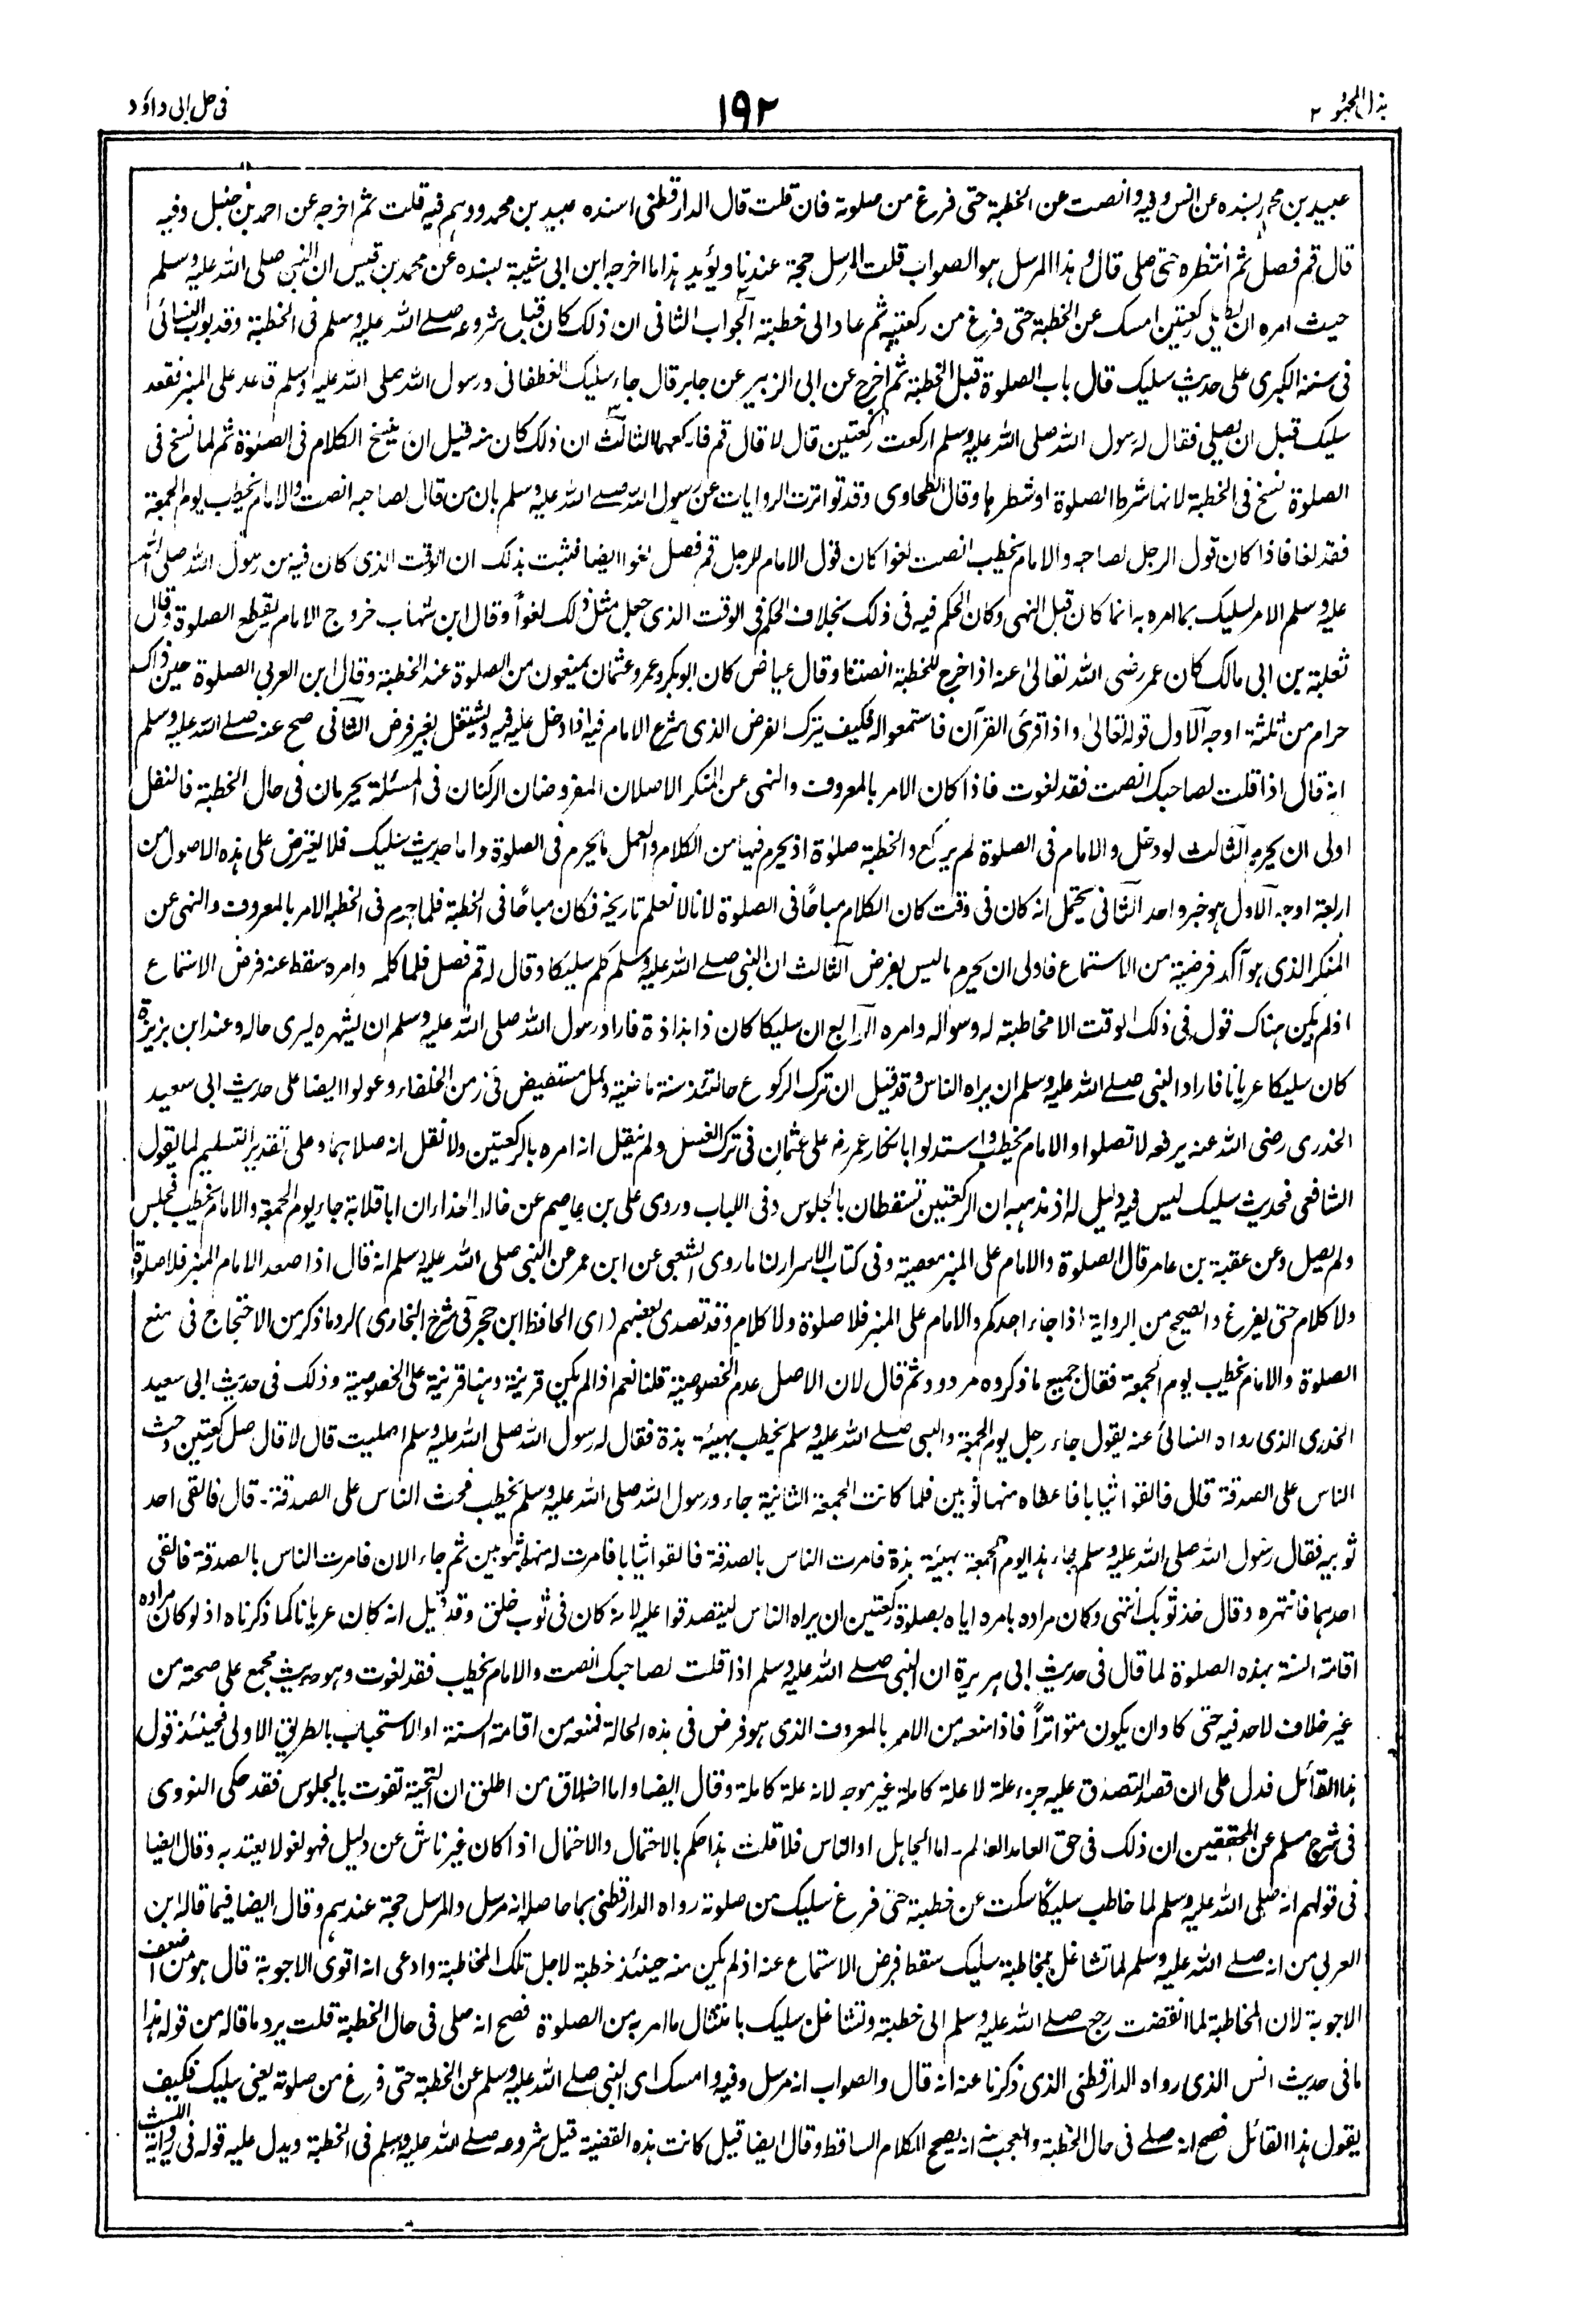 بذل المجهود ٢
١٩٢
فى حل ابى داؤد
عبيد بن محمد بسنده عن انس وفيه وانصت عن الخطبة حتى فرغ من صلوته فان قلت قال الدارقطنى اسنده عبيد بن محمد ووهم فيه قلت ثم اخرجه عن احمد بن حنبل وفيه
قال قم فصل ثم انتظره حتى صلى قال وهذا المرسل هو الصواب قلت المرسل حجة عندنا ويؤيد هذا ما اخرجه ابن ابى شيبة بسنده عن محمد بن قيس ان النبى صلى الله عليه وسلم
حيث امره ان يصلى ركعتين امسك عن الخطبة حتى فرغ من ركعتيه ثم عاد الى خطبته الجواب الثانى ان ذلك كان قبل شروعه صلى الله عليه وسلم فى الخطبة وقد بوب النسائى
فى سننه الكبرى على حديث سليك قال باب الصلوة قبل الخطبة ثم اخرج عن ابى الزبير عن جابر قال جاء سليك الغطفانى ورسول الله صلى الله عليه وسلم قاعد على المنبر فقعد
سليك قبل ان يصلى فقال له رسول الله صلى الله عليه وسلم اركعت ركعتين قال لا قال قم فاركعهما الثالث ان ذلك كان منه قبل ان ينسخ الكلام فى الصلوة ثم لما نسخ فى
الصلوة نسخ فى الخطبة لانها شرط الصلوة او شطرها وقال الطحاوى وقد تواترت الروايات عن رسول الله صلى الله عليه وسلم بان من قال لصاحبه انصت والامام يخطب يوم الجمعة
فقد لغا فاذا كان قول الرجل لصاحبه والامام يخطب انصت لغوا كان قول الامام للرجل قم فصل لغوا ايضا فثبت بذلك ان الوقت الذى كان فيه من رسول الله صلى الله
عليه وسلم الامر لسليك بما امره به انما كان قبل النهى وكان الحكم فيه فى ذلك بخلاف الحكم فى الوقت الذى جعل مثل ذلك لغواً وقال ابن شهاب خروج الامام يقطع الصلوة وقال
ثعلبة بن ابى مالك كان عمر رضى الله تعالى عنه اذا خرج للخطبة انصتنا وقال عياض كان ابوبكر وعمر وعثمان يمنعون من الصلوة عند الخطبة وقال ابن العربى الصلوة حين ذاك
حرام من ثلثة اوجه الاول قوله تعالى واذا قرئ القرآن فاستمعوا له فكيف يترك الفرض الذى شرع الامام فيه اذا دخل عليه فيه ويشتغل بغير فرض الثانى صح عنه صلى الله عليه وسلم
انه قال اذا قلت لصاحبك انصت فقد لغوت فاذا كان الامر بالمعروف والنهى عن المنكر الاصلان المفروضان الركنان فى المسئلة يحرمان فى حال الخطبة فالنفل
اولى ان يحرم الثالث لو دخل والامام فى الصلوة لم يركع والخطبة صلوة اذ يحرم فيها من الكلام والعمل ما يحرم فى الصلوة واما حديث سليك فلا يعترض على هذه الاصول من
اربعة اوجه الاول هو خبر واحد الثانى يحتمل انه كان فى وقت كان الكلام مباحًا فى الصلوة لانا لا نعلم تاريخه فكان مباحًا فى الخطبة فلما حرم فى الخطبة الامر بالمعروف والنهى عن
المنكر الذى هو آكد فرضية من الاستماع فاولى ان يحرم ما ليس بفرض الثالث ان النبى صلى الله عليه وسلم كلم سليكا وقال له قم فصل فلما كلمه وامره سقط عنه فرض الاستماع
اذ لم يكن هناك قول فى ذلك الوقت الا مخاطبته له وسواله وامره الرابع ان سليكا كان ذا بذاذة فاراد رسول الله صلى الله عليه وسلم ان يشهره ليرى حاله وعند ابن بزيزة
كان سليكا عريانا فاراد النبى صلى الله عليه وسلم ان يراه الناس وقد قيل ان ترك الركوع حالتئذ سنة ماضية وعمل مستفيض فى زمن الخلفاء وعولوا ايضا على حديث ابى سعيد
الخدرى رضى الله عنه يرفعه لا تصلوا والامام يخطب واستدلوا بانكار عمر رض على عثمان فى ترك الغسل ولم ينقل انه امره بالركعتين ولا نقل انه صلاهما وعلى تقدير التسليم لما يقول
الشافعى فحديث سليك ليس فيه دليل له اذ مذهبه ان الركعتين تسقطان بالجلوس وفى اللباب وروى على بن عاصم عن خالد الحذاء ان ابا قلابة جاء يوم الجمعة والامام يخطب فجلس
ولم يصل وعن عقبة بن عامر قال الصلوة والامام على المنبر معصية وفى كتاب الاسرار لنا ما روى الشعبى عن ابن عمر عن النبى صلى الله عليه وسلم انه قال اذا صعد الامام المنبر فلا صلوة
ولا كلام حتى يفرغ والصحيح من الرواية اذا جاء احدكم والامام على المنبر فلا صلوة ولا كلام وقد تصدى بعضهم (اى الحافظ ابن حجر فى شرح البخارى) لرد ما ذكر من الاحتجاج فى منع
الصلوة والامام يخطب يوم الجمعة فقال جميع ما ذكروه مردود ثم قال لان الاصل عدم الخصوصية قلنا نعم اذا لم يكن قرينة وهنا قرينة على الخصوصية وذلك فى حديث ابى سعيد
الخدرى الذى رواه النسائى عنه يقول جاء رجل يوم الجمعة والنبى صلى الله عليه وسلم يخطب بهيئة بذة فقال له رسول الله صلى الله عليه وسلم اصليت قال لا قال صل ركعتين وحث
الناس على الصدقة قال فالقوا ثيابا فاعطاه منها ثوبين فلما كانت الجمعة الثانية جاء ورسول الله صلى الله عليه وسلم يخطب فحث الناس على الصدقة۔ قال فالقى احد
ثوبيه فقال رسول الله صلى الله عليه وسلم جاء هذا يوم الجمعة بهيئة بذة فامرت الناس بالصدقة فالقوا ثيابا فامرت له منها بثوبين ثم جاء الان فامرت الناس بالصدقة فالقى
احدهما فانتهره وقال خذ ثوبك انتهى وكان مراده بامره اياه بصلوة ركعتين ان يراه الناس ليتصدقوا عليه لانه كان فى ثوب خلق وقد قيل انه كان عريانا كما ذكرناه اذ لو كان مراده
اقامة السنة بهذه الصلوة لما قال فى حديث ابى هريرة ان النبى صلى الله عليه وسلم اذا قلت لصاحبك انصت والامام يخطب فقد لغوت وهو حديث مجمع على صحته من
غير خلاف لاحد فيه حتى كاد ان يكون متواتراً فاذا منعه من الامر بالمعروف الذى هو فرض فى هذه الحالة فمنعه من اقامة السنة او الاستحباب بالطريق الاولى فحينئذ قول
هذا القائل فدل على ان قصد التصدق عليه جزء علة لا علة كاملة غير موجه لانه علة كاملة وقال ايضا واما اطلاق من اطلق ان التحية تفوت بالجلوس فقد حكى النووى
فى شرح مسلم عن المحققين ان ذلك فى حق العامد العالم۔ اما الجاهل او الناس فلا قلت هذا حكم بالاحتمال والاحتمال اذا كان غير ناش عن دليل فهو لغو لا يعتد به وقال ايضا
فى قولهم انه صلى الله عليه وسلم لما خاطب سليكًا سكت عن خطبته حتى فرغ سليك من صلوته رواه الدارقطنى بما حاصله انه مرسل والمرسل حجة عندهم وقال ايضا فيما قاله ابن
العربى من انه صلى الله عليه وسلم لما تشاغل بمخاطبة سليك سقط فرض الاستماع عنه اذ لم يكن منه حينئذ خطبة لاجل تلك المخاطبة وادعى انه اقوى الاجوبة قال هو من اضعف
الاجوبة لان المخاطبة لما انقضت رجع صلى الله عليه وسلم الى خطبته وتشاغل سليك بامتثال ما امر به من الصلوة فصح انه صلى فى حال الخطبة قلت يرد ما قاله من قوله هذا
ما فى حديث انس الذى رواه الدارقطنى الذى ذكرنا عنه انه قال والصواب انه مرسل وفيه وامسك اى النبى صلى الله عليه وسلم عن الخطبة حتى فرغ من صلوته يعنى سليك فكيف
يقول هذا القائل فصح انه صلى فى حال الخطبة والعجب منه انه يصحح الكلام الساقط وقال ايضا قيل كانت هذه القضية قبل شروعه صلى الله عليه وسلم فى الخطبة ويدل عليه قوله فى رواية الليث